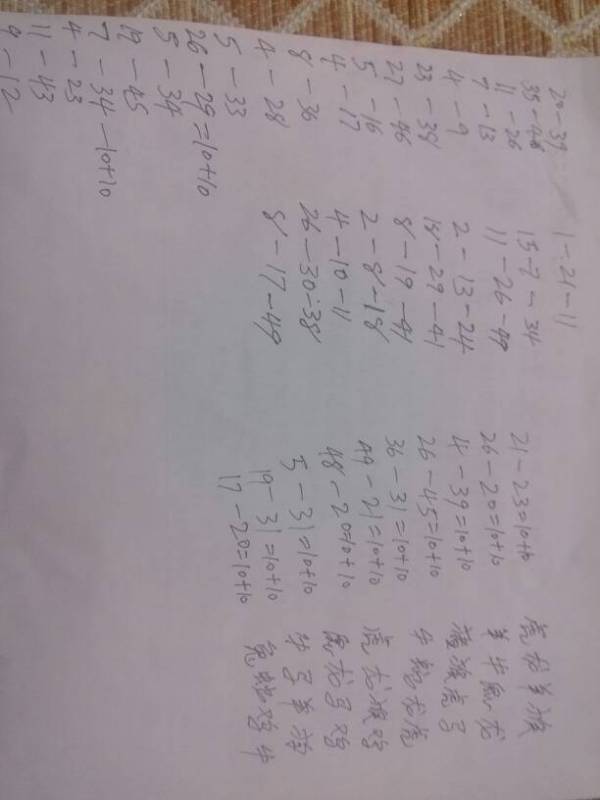 20-39
35-46
11-26
7-13
4-9
23-38
27-46
5-16
4-17
8-36
4-28
5-33
26-29=10+10
5-34
19-45
7-34-10+10
4-23
11-43
9-12
1-21-11
13-7-34
11-26-49
2-13-24
18-29-41
8-19-41
2-8-18
4-10-11
26-30-38
8-17-49
21-23=10+10
26-20=10+10
4-39=10+10
26-45=10+10
36-31=10+10
49-21=10+10
48-20=10+10
5-31=10+10
19-31=10+10
17-20=10+10
虎龙羊猴
羊牛鼠龙
猴虎马
牛鸡龙虎
虎龙猴鸡
鼠龙马鸡
牛马羊猪
兔蛇鸡牛